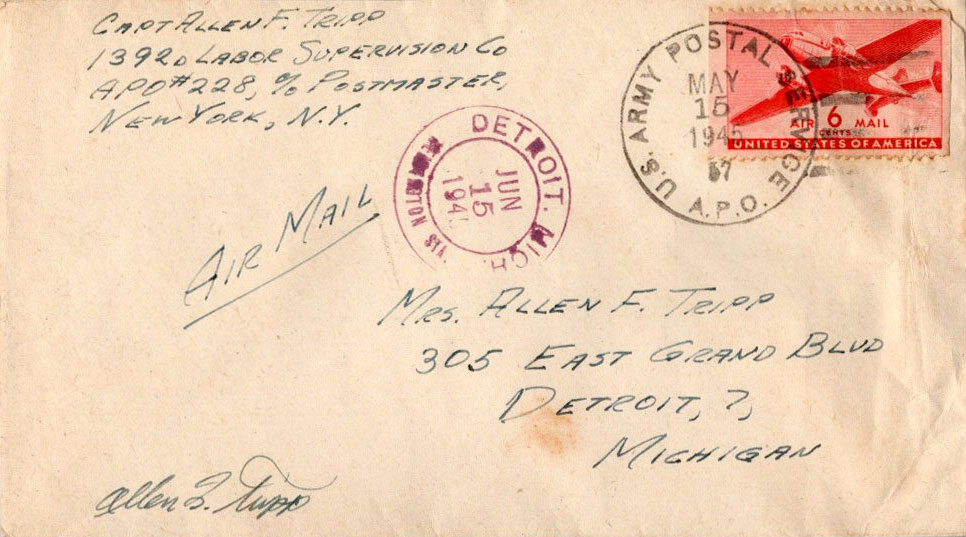 CAPT ALLEN F. TRIPP
1392D LABOR SUPERVISION CO
APO #228, % POSTMASTER,
NEW YORK, N.Y.
U.S. ARMY POSTAL SERVICE
MAY
15
1945
A.P.O.
AIR 6 MAIL
CENTS
UNITED STATES OF AMERICA
DETROIT. MICH.
JUN
15
STA.
AIR MAIL
MRS. ALLEN F. TRIPP
305 EAST GRAND BLVD
DETROIT, 7,
MICHIGAN
Allen F. Tripp